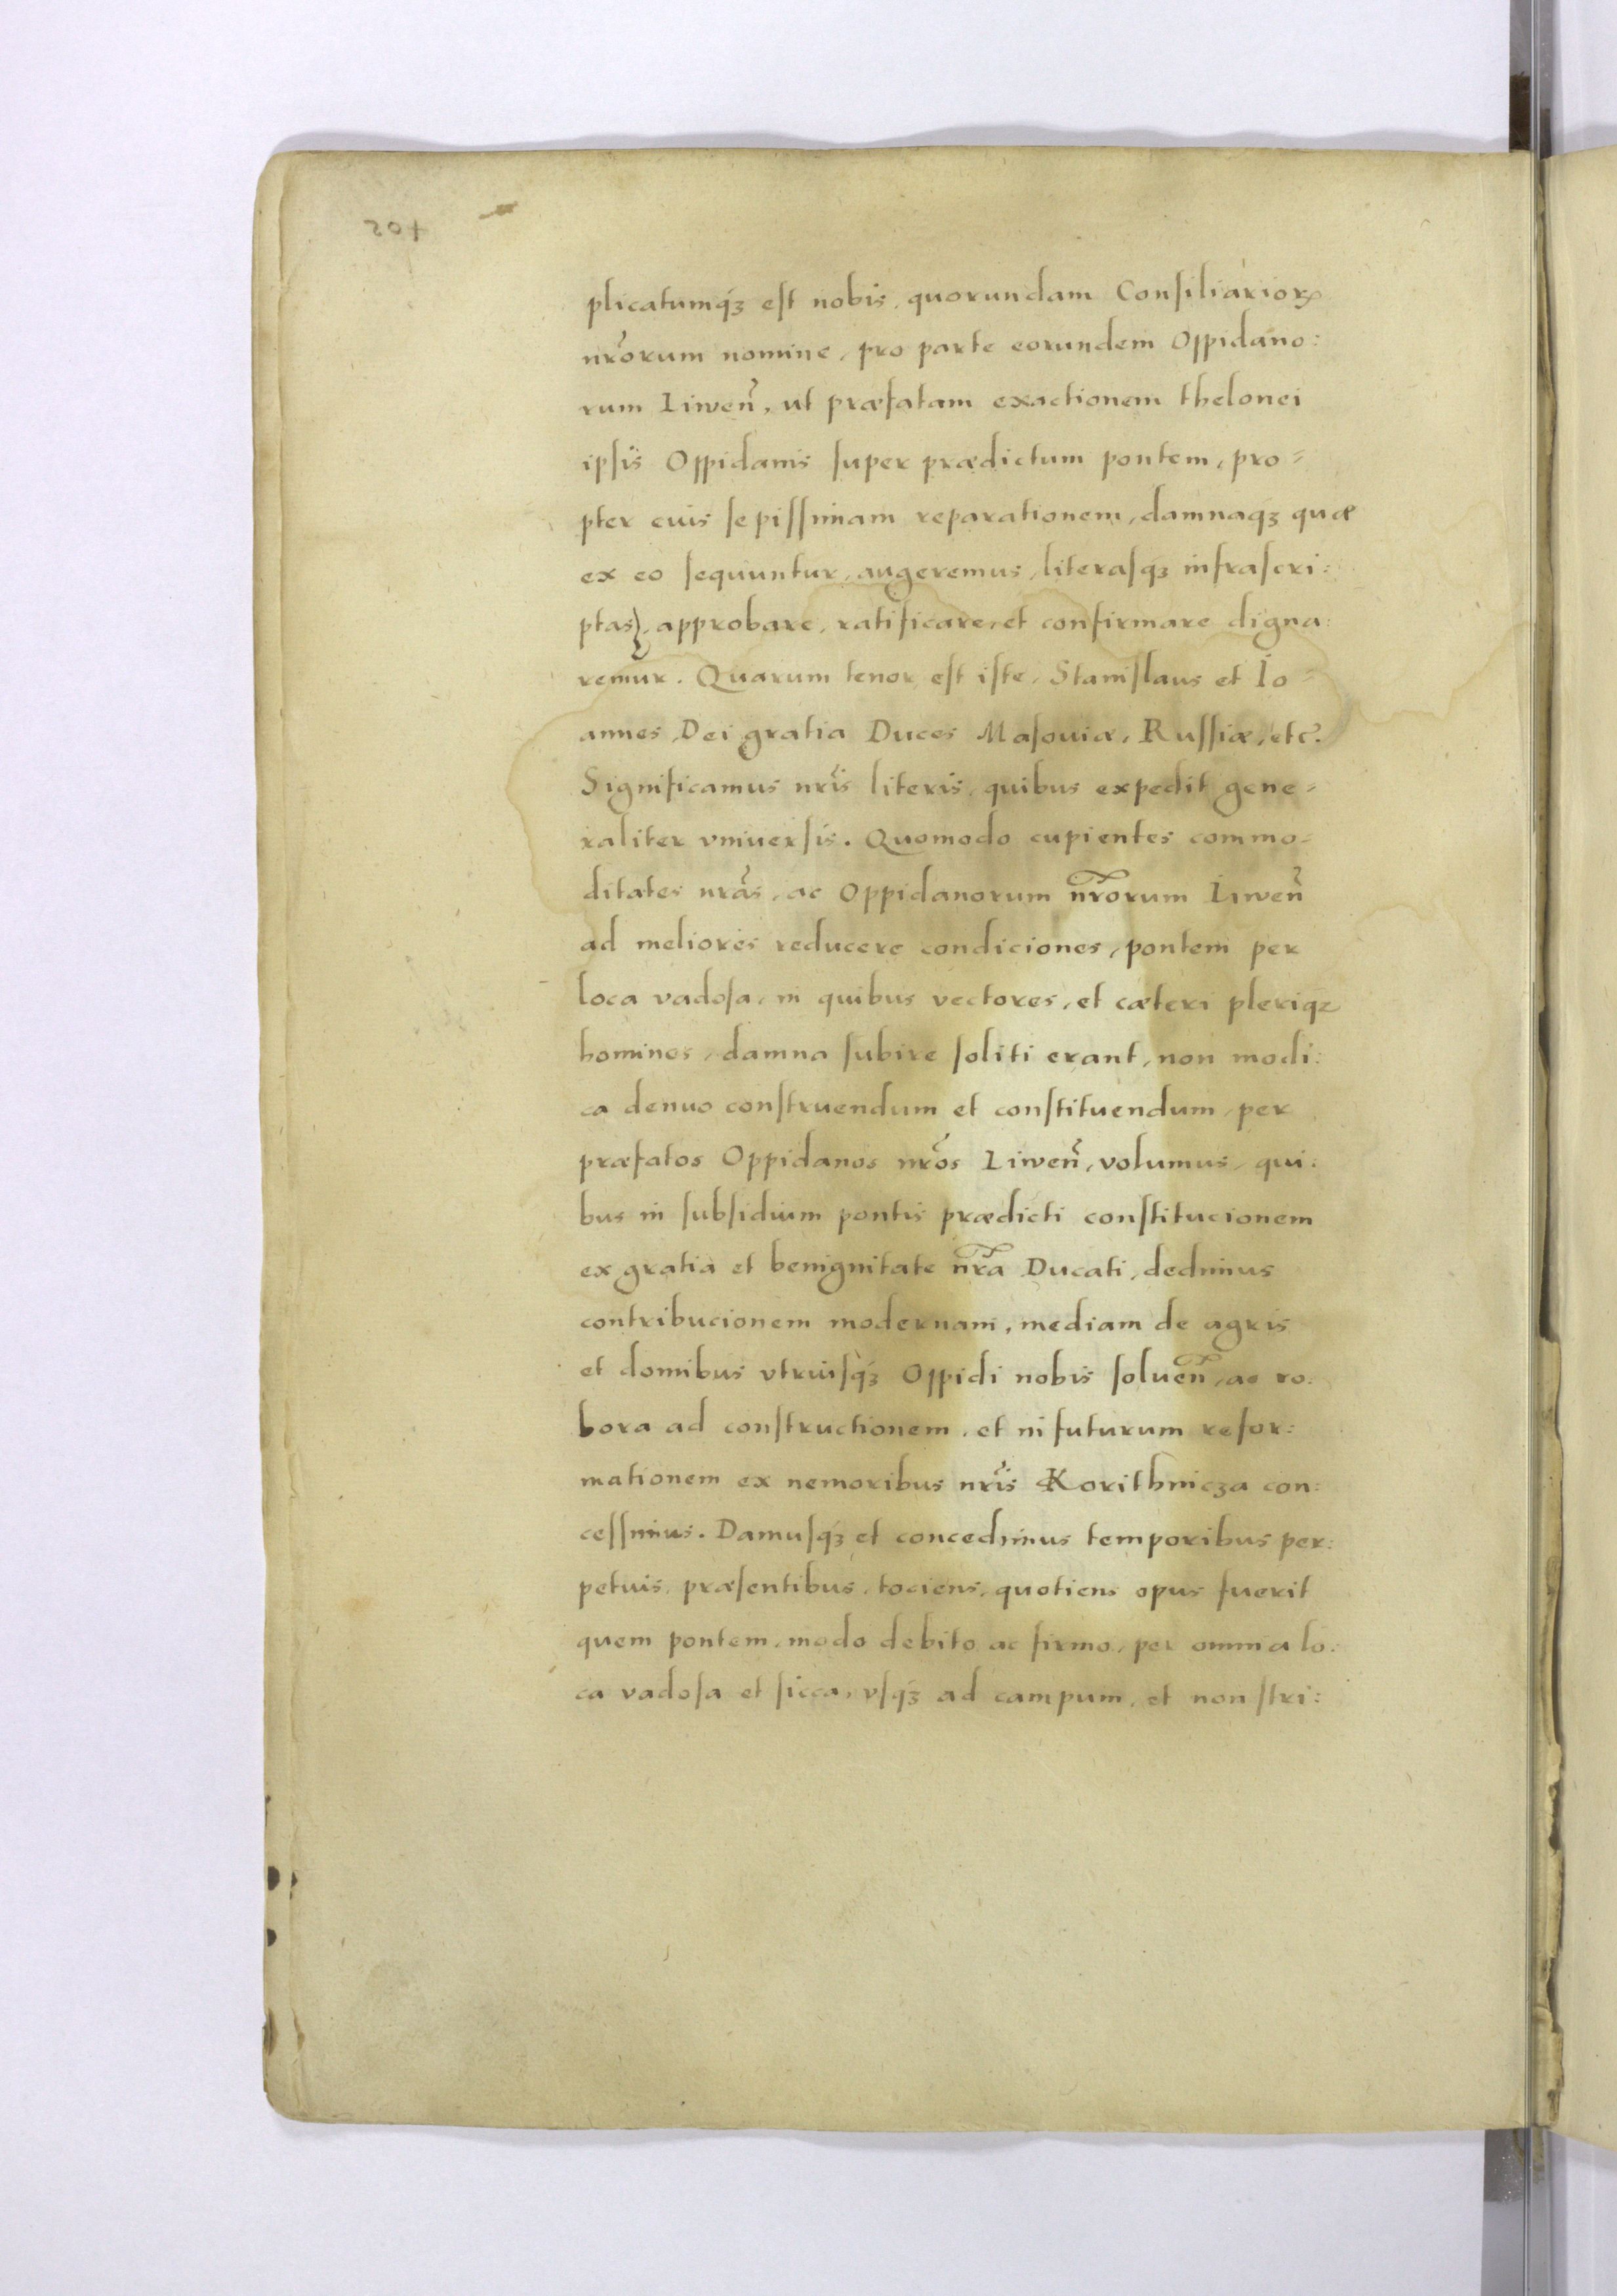 plicatumqꝫ est nobis, quorundam Consiliarioꝝ
nr̃orum nomine, pro parte eorundem Oppidano:
rum Liwen̄, ut præfatam exactionem thelonei
ipsis Oppidanis super prædictum pontem, pro=
pter cuius sepissimam reparationem, damnaqꝫ quæ
ex eo sequuntur, augeremus, literasqꝫ infrascri:
ptas, approbare, ratificare, et confirmare digna:
remur. Quarum tenor est iste, Stanislaus et Io=
annes Dei gratia Duces Masouiæ, Russiæ, etc.
Significamus nr̃is literis, quibus expedit gene=
raliter vniuersis. Quomodo cupientes commo=
ditates nr̃as, ac Oppidanorum nr̃orum Liwen̄
ad meliores reducere condiciones, pontem per
loca vadosa, in quibus vectores, et cæteri pleriqꝫ
homines, damna subire soliti erant, non modi:
ca denuo construendum et constituendum, per
præfatos Oppidanos nr̃os Liwen̄, volumus, qui:
bus in subsidium pontis prædicti constitucionem
ex gratia et benignitate nr̃a Ducati, dedimus
contribucionem modernam, mediam de agris
et domibus vtriusqꝫ Oppidi nobis soluen̄, ac ro:
bora ad constructionem, et in futurum refor:
mationem ex nemoribus nr̃is Korithnicza con:
cessimus. Damusqꝫ et concedimus temporibus per:
petuis, præsentibus, tociens, quotiens opus fuerit
quem pontem, modo debito ac firmo, per omnia lo:
ca vadosa et sicca, vsqꝫ ad campum, et non stri: